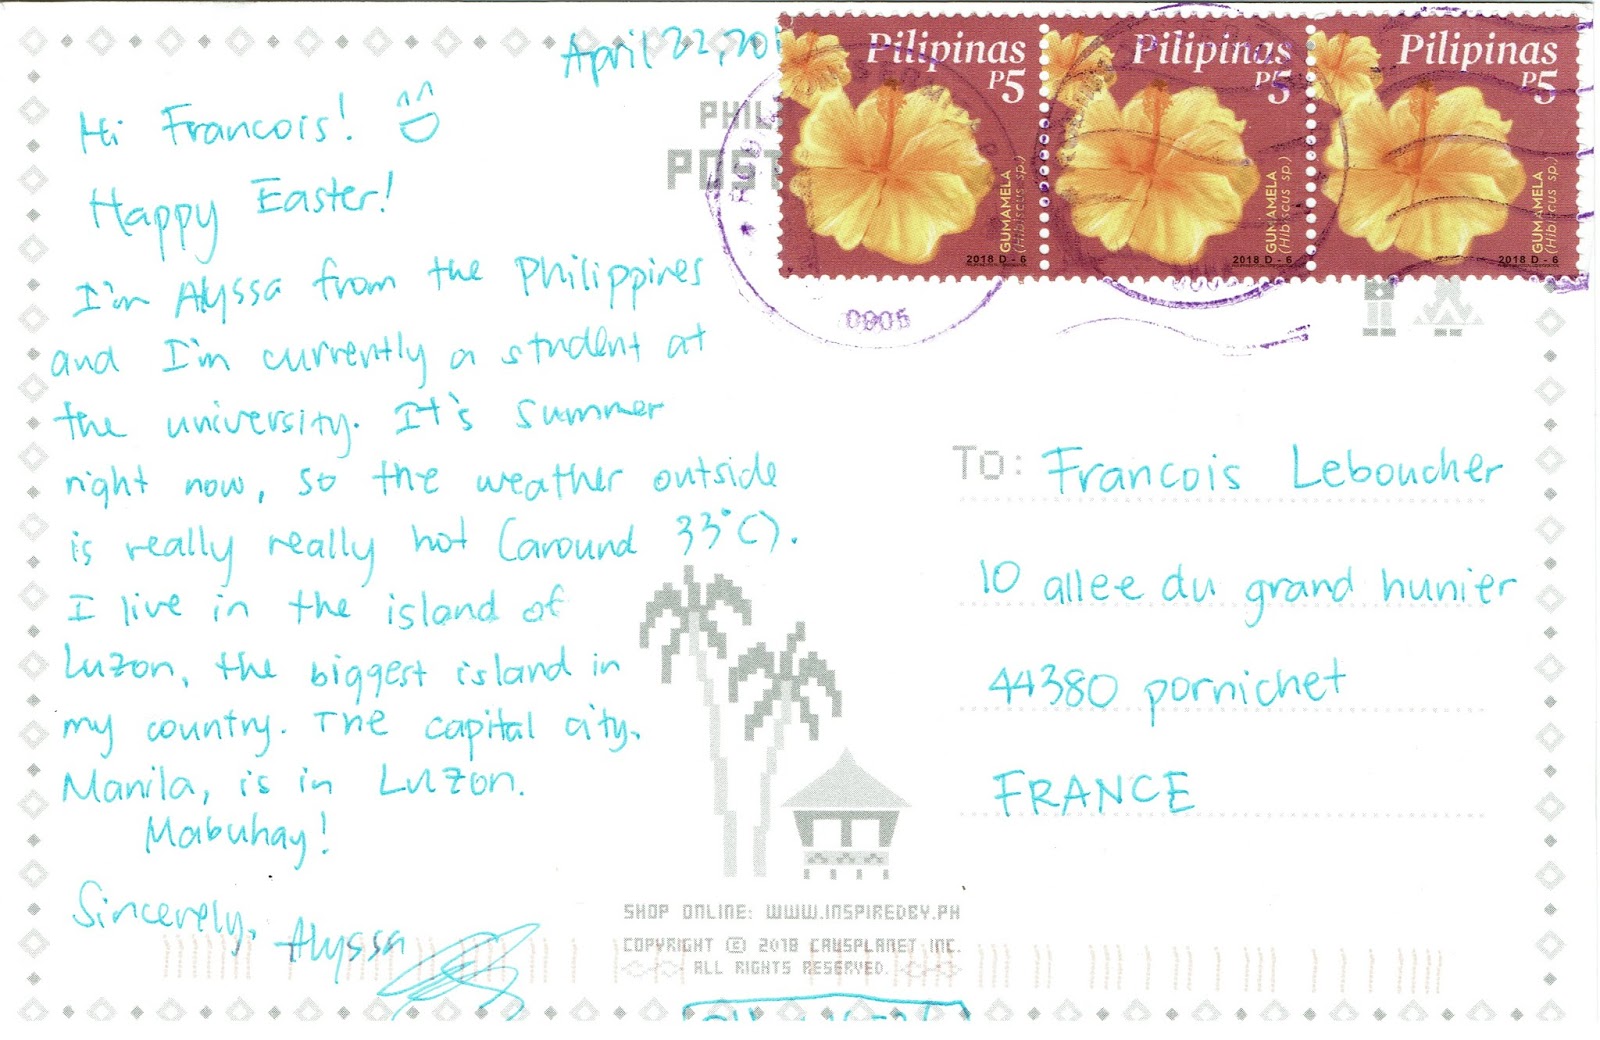 April 22, 20
Hi Francois!
Happy Easter!
I'm Alyssa from the Philippines
and I'm currently a student at
the university. It's summer
right now, so the weather outside
is really really hot (around 33°C).
I live in the island of
Luzon, the biggest island in
my country. The capital city,
Manila, is in Luzon.
Mabuhay!
Sincerely,
Alyssa
PHIL
POST
Pilipinas
P5
GUMAMELA
(Hibiscus sp.)
2018 D - 6
Pilipinas
P5
GUMAMELA
(Hibiscus sp.)
2018 D - 6
Pilipinas
P5
GUMAMELA
(Hibiscus sp.)
2018 D - 6
0905
TO: Francois Leboucher
10 allee du grand hunier
44380 pornichet
FRANCE
SHOP ONLINE: WWW.INSPIREDBY.PH
COPYRIGHT © 2018 CAUSPLANET INC.
ALL RIGHTS RESERVED.